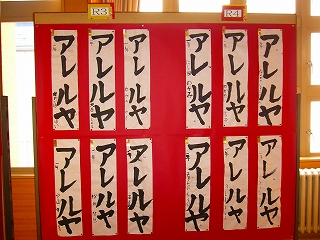 R3
R4
アレルヤ
アレルヤ
アレルヤ
アレルヤ
アレルヤ
アレルヤ
アレルヤ
アレルヤ
アレルヤ
アレルヤ
アレルヤ
アレルヤ